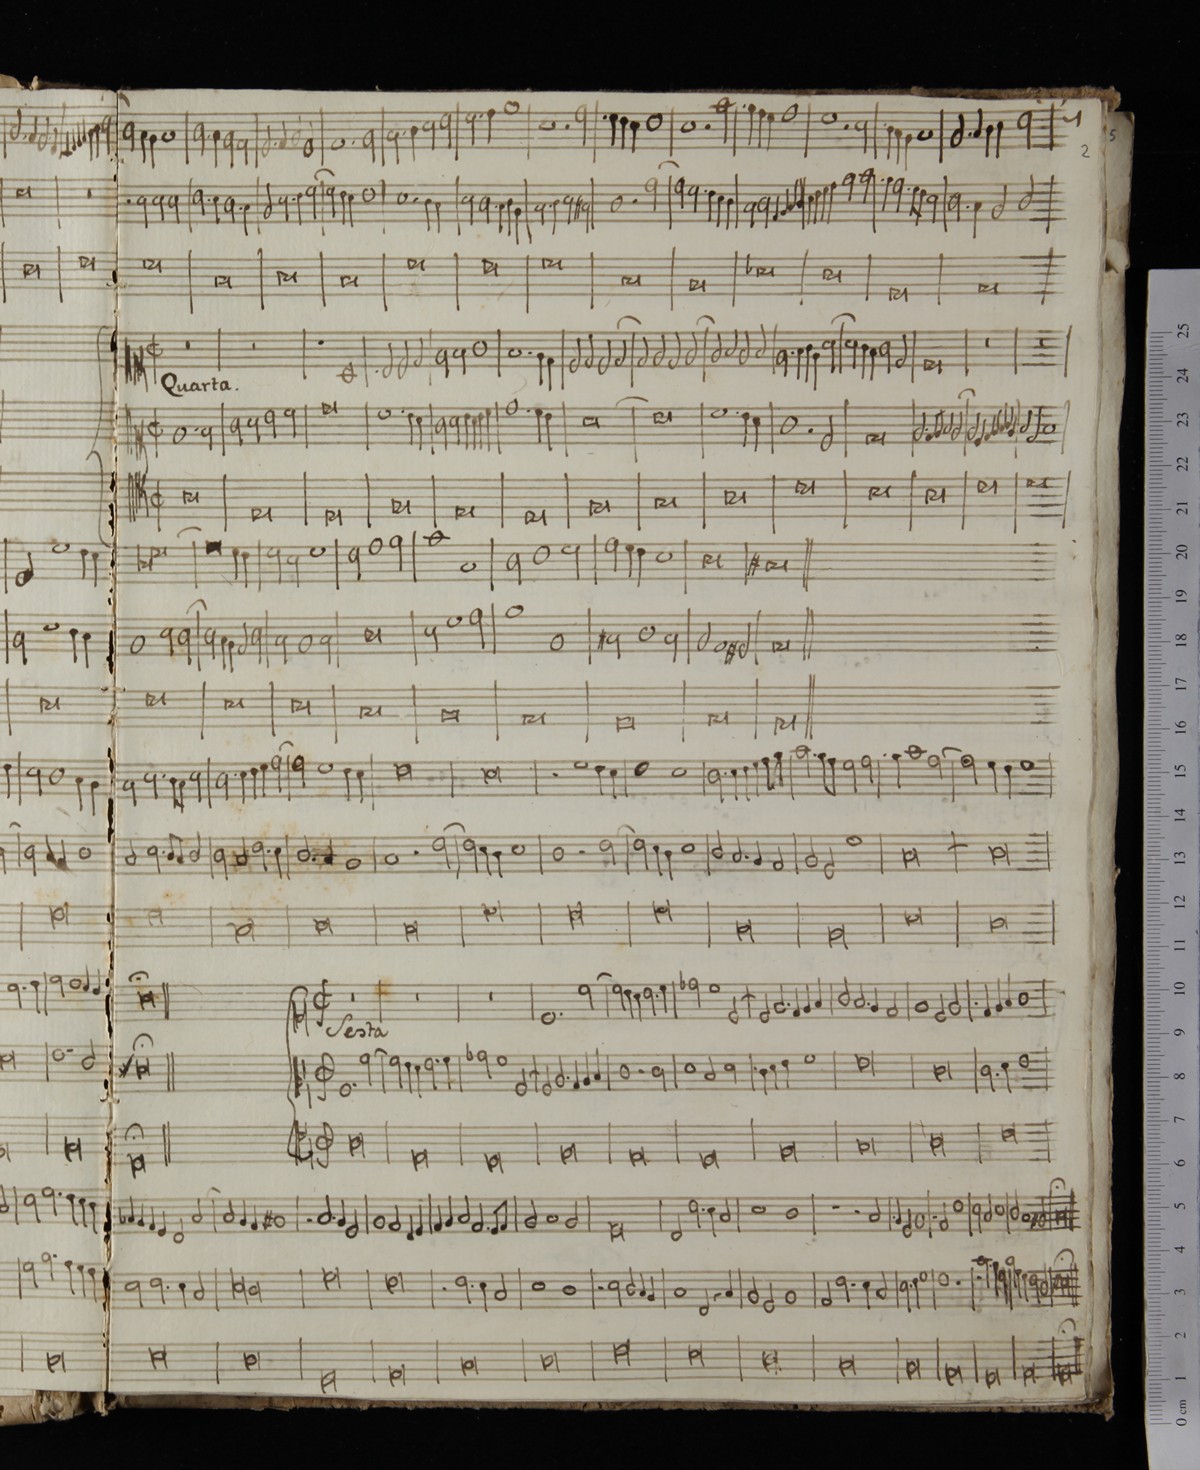 5
2
Quarta.
Sesta
25
24
23
22
21
20
19
18
17
16
15
14
13
12
11
10
9
8
7
6
5
4
3
2
1
0 cm